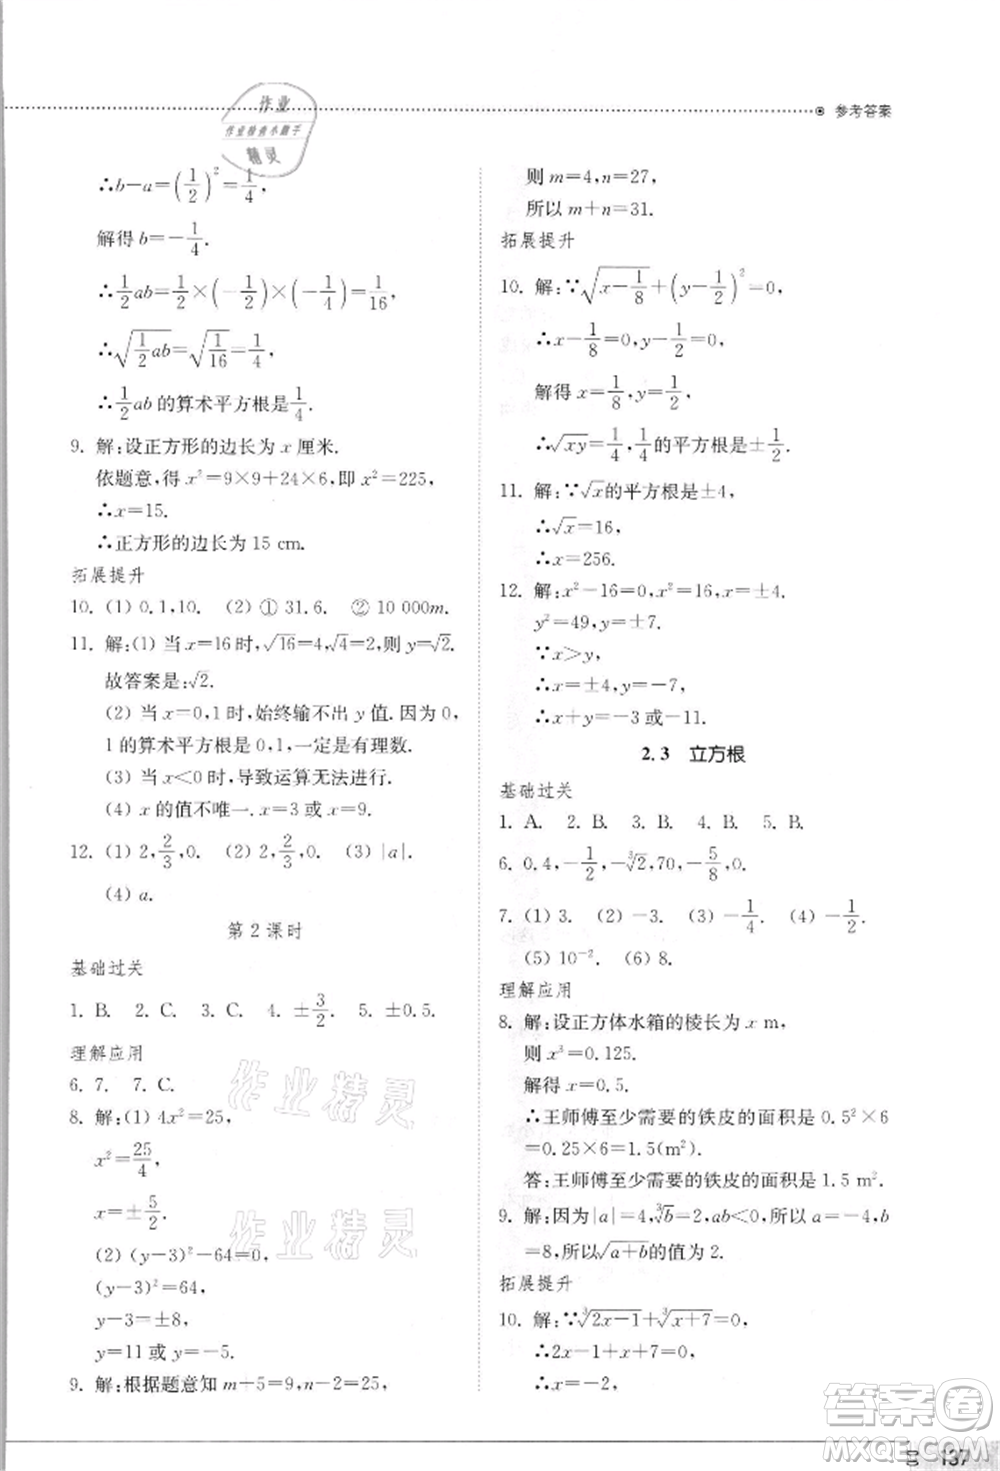 参考答案
作业
作业检查小助手
精灵
∴b－a＝(1/2)²＝1/4,
解得 b＝－1/4.
∴1/2ab＝1/2×(－1/2)×(－1/4)＝1/16,
∴√(1/2ab)＝√(1/16)＝1/4,
∴1/2ab 的算术平方根是1/4.
9. 解:设正方形的边长为 x 厘米.
依题意,得 x²＝9×9＋24×6,即 x²＝225,
∴x＝15.
∴正方形的边长为 15 cm.
拓展提升
10. (1) 0.1,10. (2) ① 31.6. ② 10 000m.
11. 解:(1) 当 x＝16 时,√16＝4,√4＝2,则 y＝√2.
故答案是:√2.
(2) 当 x＝0,1 时,始终输不出 y 值.因为 0,
1 的算术平方根是 0,1,一定是有理数.
(3) 当 x＜0 时,导致运算无法进行.
(4) x 的值不唯一.x＝3 或 x＝9.
12. (1) 2,2/3,0. (2) 2,2/3,0. (3) |a|.
(4) a.
第 2 课时
基础过关
1. B. 2. C. 3. C. 4. ±3/2. 5. ±0.5.
理解应用
6. 7. 7. C.
8. 解:(1) 4x²＝25,
x²＝25/4,
x＝±5/2.
(2) (y－3)²－64＝0,
(y－3)²＝64,
y－3＝±8,
y＝11 或 y＝－5.
9. 解:根据题意知 m＋5＝9,n－2＝25,
则 m＝4,n＝27,
所以 m＋n＝31.
拓展提升
10. 解:∵√(x－1/8)＋(y－1/2)²＝0,
∴x－1/8＝0,y－1/2＝0,
解得 x＝1/8,y＝1/2,
∴√xy＝1/4,1/4的平方根是±1/2.
11. 解:∵√x的平方根是±4,
∴√x＝16,
∴x＝256.
12. 解:x²－16＝0,x²＝16,x＝±4.
y²＝49,y＝±7.
∵x＞y,
∴x＝±4,y＝－7,
∴x＋y＝－3 或－11.
2.3 立方根
基础过关
1. A. 2. B. 3. B. 4. B. 5. B.
6. 0.4,－1/2,－∛2,70,－5/8,0.
7. (1) 3. (2) －3. (3) －1/4. (4) －1/2.
(5) 10⁻². (6) 8.
理解应用
8. 解:设正方体水箱的棱长为 x m,
则 x³＝0.125.
解得 x＝0.5,
∴王师傅至少需要的铁皮的面积是 0.5²×6
＝0.25×6＝1.5(m²).
答:王师傅至少需要的铁皮的面积是 1.5 m².
9. 解:因为|a|＝4,∛b＝2,ab＜0,所以 a＝－4,b
＝8,所以√(a＋b)的值为 2.
拓展提升
10. 解:∵∛(2x－1)＋∛(x＋7)＝0,
∴2x－1＋x＋7＝0,
∴x＝－2,
作业精灵
作业精灵
答案卷
MXQE.COM
137